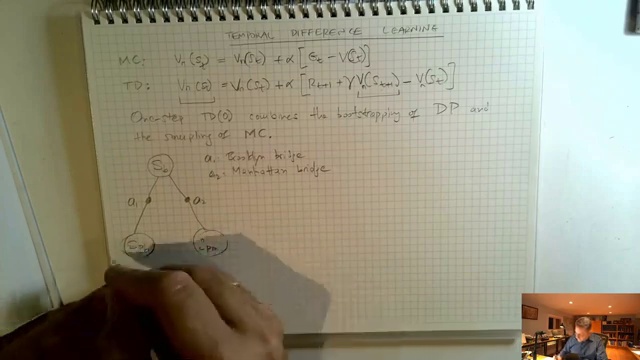 TEMPORAL DIFFERENCE LEARNING
MC: Vπ(St) = Vπ(St) + α [Gt − V(St)]
TD: Vπ(S) = Vπ(St) + α [Rt+1 + γ Vπ(St+1) − Vπ(St)]
One-step TD(0) combines the bootstrapping of DP and
the sampling of MC.
a1: Brooklyn bridge
a2: Manhattan bridge
S0
a1 a2